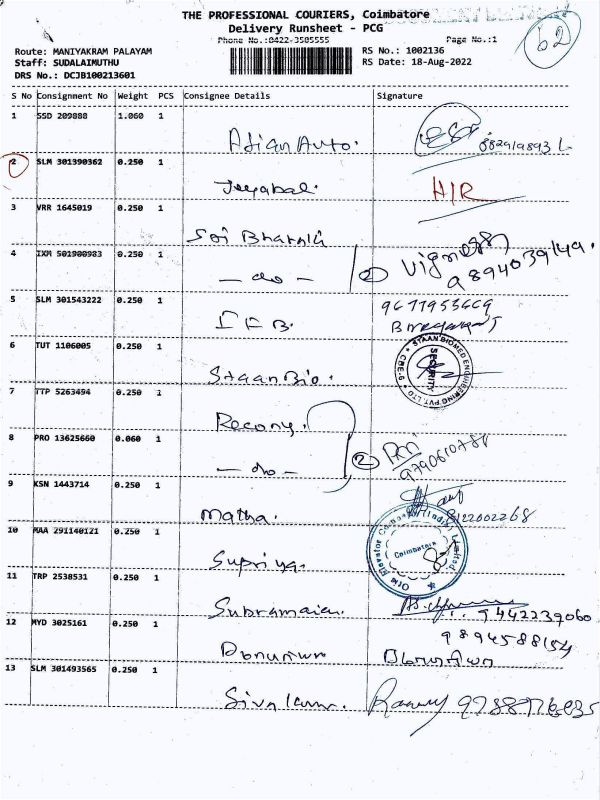 THE PROFESSIONAL COURIERS, Coimbatore
Delivery Runsheet - PCG
Phone No.:0422-3505555
Page No.:1
62
Route: MANIYAKRAM PALAYAM
Staff: SUDALAIMUTHU
DRS No.: DCJB100213601
RS No.: 1002136
RS Date: 18-Aug-2022
S No Consignment No Weight PCS Consignee Details Signature
1 SSD 209888 1.060 1
Asian Auto.
2 SLM 301390362 0.250 1
Jeyabal. H/R
3 VRR 1645019 0.250 1
Sri Bharathi
4 IXM 501900983 0.250 1
- do - 2 Vignesh
9894039149.
5 SLM 301543222 0.250 1
I F B.
6 TUT 1106005 0.250 1
Staan Bio.
STAAN BIOMED ENGINEERING PVT. LTD
CBE-6
SECURITY
7 TTP 5263494 0.250 1
Recony.
8 PRO 13625660 0.060 1
- do - 2
9 KSN 1443714 0.250 1
Matha.
8122002268
10 MAA 291140121 0.250 1
Supriya.
Otis Elevator Company (India) Limited
Coimbatore
11 TRP 2538531 0.250 1
Subramaian.
9442239060
12 MYD 3025161 0.250 1
9894588154
13 SLM 301493565 0.250 1